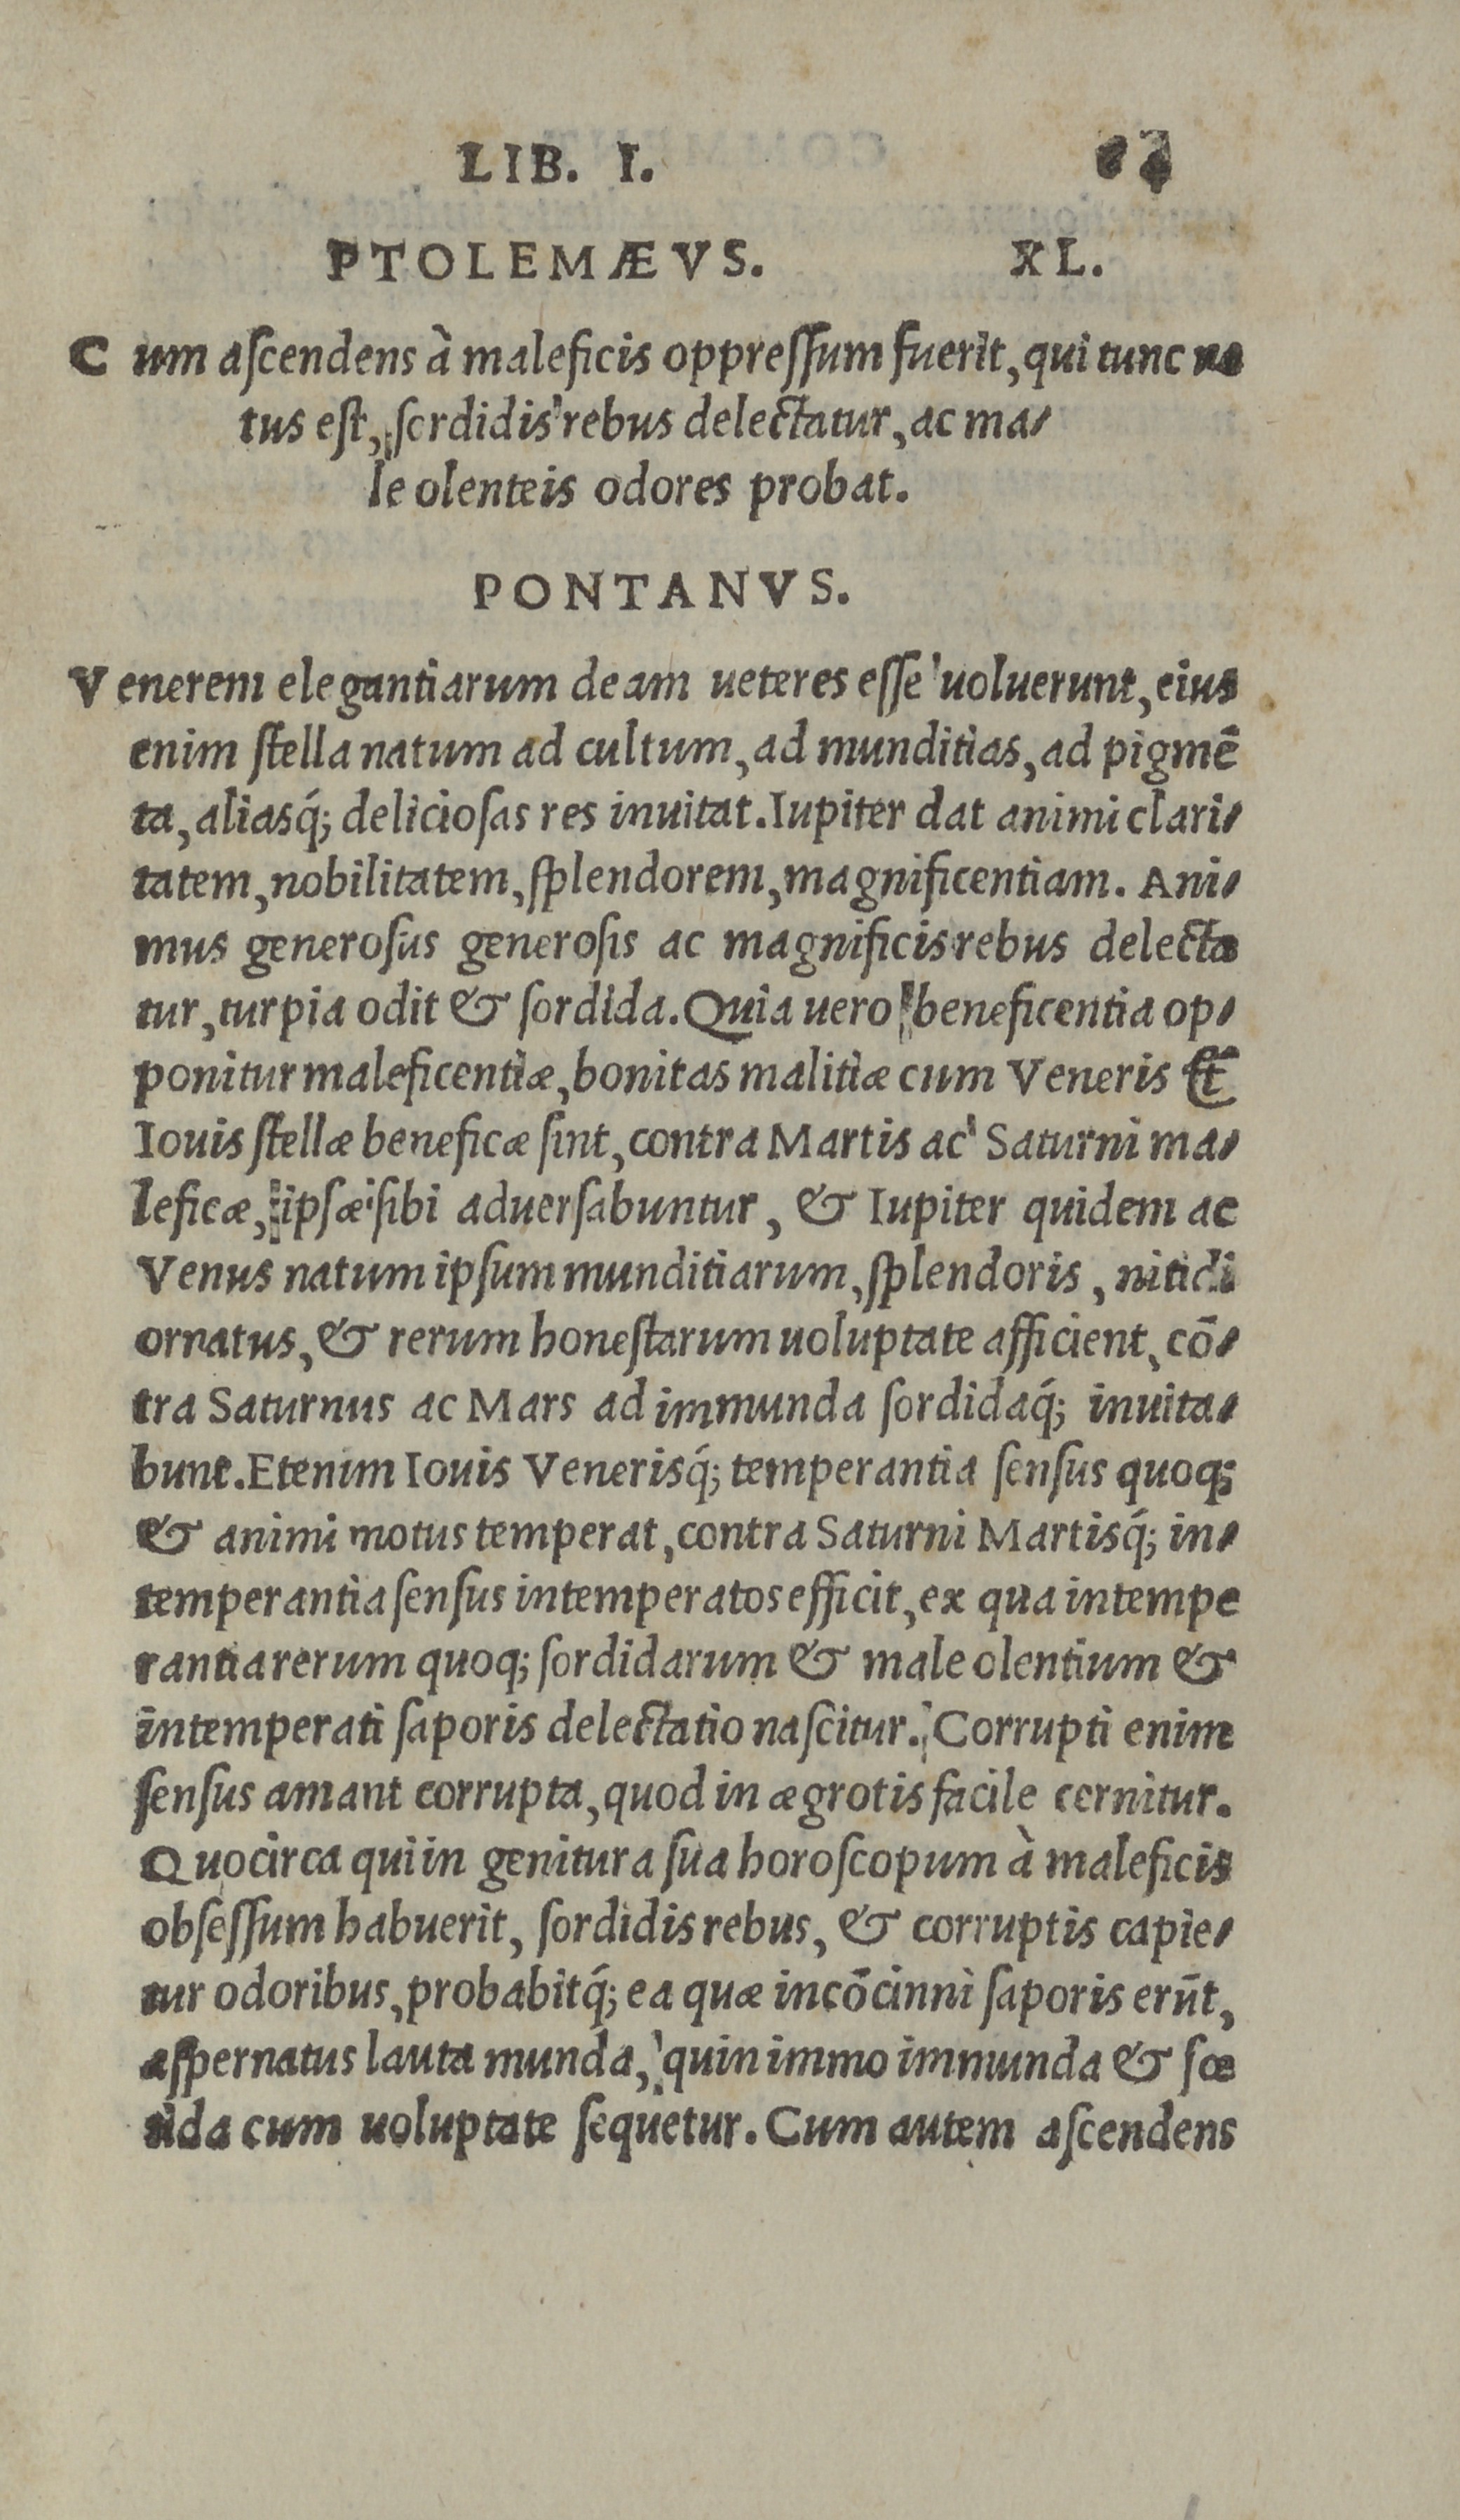 LIB. I.
PTOLEMÆVS. XL.
Cum aſcendens à maleficis oppreſſum fuerit, qui tunc na
tus eſt, ſordidis rebus delectatur, ac ma-
le olenteis odores probat.
PONTANVS.
Venerem elegantiarum deam ueteres eſſe uoluerunt, eius
enim ſtella natum ad cultum, ad munditias, ad pigmē
ta, aliasq́; delicioſas res inuitat. Iupiter dat animi clari-
tatem, nobilitatem, ſplendorem, magnificentiam. Ani-
mus generoſus generoſis ac magnificis rebus delecta
tur, turpia odit & ſordida. Quia uero beneficentia op-
ponitur maleficentiæ, bonitas malitiæ cum Veneris &
Iouis ſtellæ beneficæ ſint, contra Martis ac Saturni ma-
leficæ, ipſæ ſibi aduerſabuntur, & Iupiter quidem ac
Venus natum ipſum munditiarum, ſplendoris, nitidi
ornatus, & rerum honeſtarum uoluptate afficient, cō-
tra Saturnus ac Mars ad immunda ſordidaq́; inuita-
bunt. Etenim Iouis Venerisq́; temperantia ſenſus quoq;
& animi motus temperat, contra Saturni Martisq́; in-
temperantia ſenſus intemperatos efficit, ex qua intempe
rantia rerum quoq; ſordidarum & male olentium &
intemperati ſaporis delectatio naſcitur. Corrupti enim
ſenſus amant corrupta, quod in ægrotis facile cernitur.
Quocirca qui in genitura ſua horoſcopum à maleficis
obſeſſum habuerit, ſordidis rebus, & corruptis capie-
tur odoribus, probabitq́; ea quæ incōcinni ſaporis erūt,
aſpernatus lauta munda, quin immo immunda & fœ
tida cum uoluptate ſequetur. Cum autem aſcendens